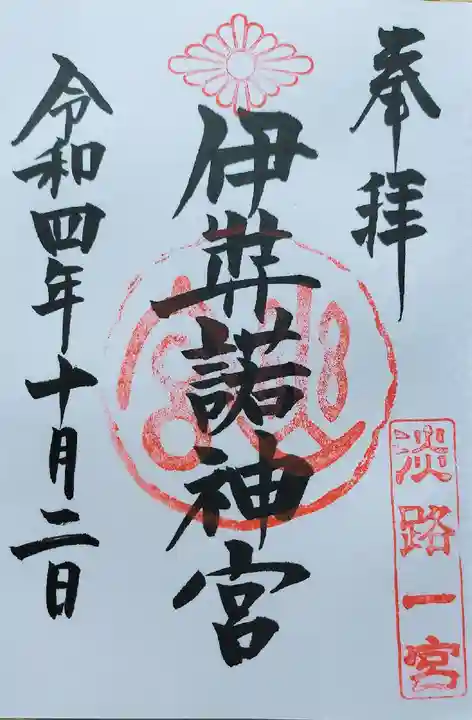 奉拝
淡路一宮
伊弉諾神宮
令和四年十月二日